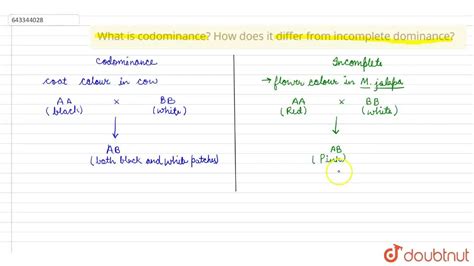 643344028
What is codominance? How does it differ from incomplete dominance?
Codominance
coat colour in cow
AA × BB
(black) (white)
AB
(both black and white patches)
Incomplete
→ flower colour in M. jalapa
AA × BB
(Red) (white)
AB
(Pink)
doubtnut